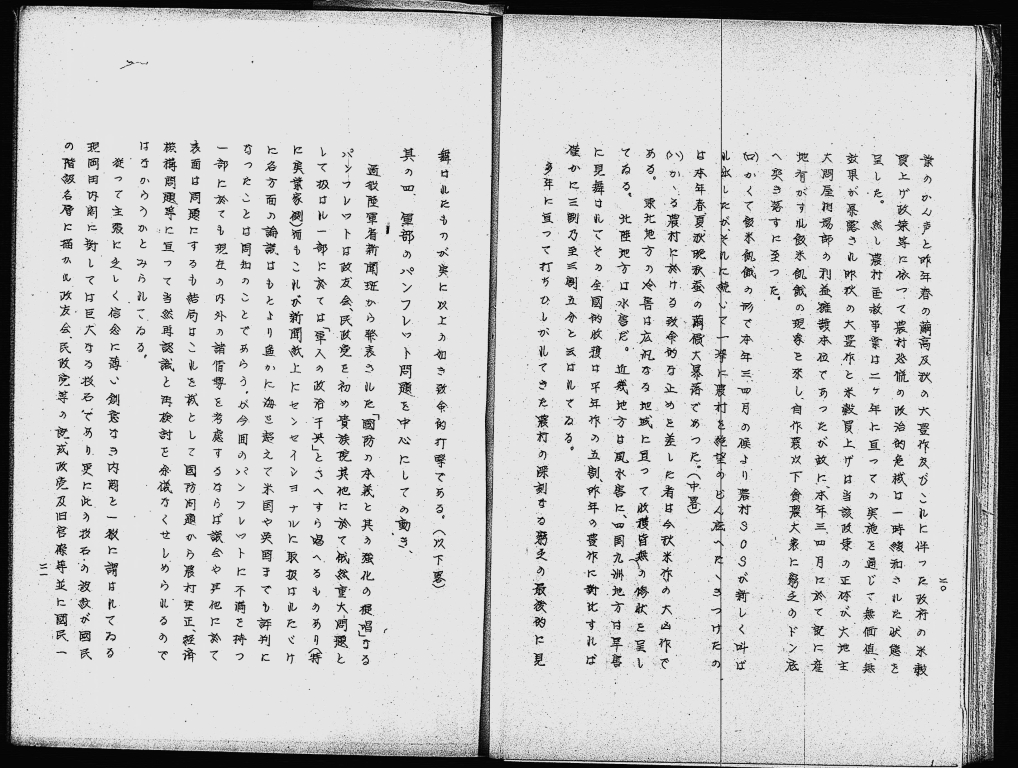 業のかん戸と昨年春の繭高及秋の大豊作及びこれに伴った政府の米穀
買上げ政策等に依って農村恐慌の政治的危機は一時緩和された状態を
呈した。然し農村匡救事業は二ヶ年に亘っての実施を通じて無価値、無
効果が暴露され昨秋の大豊作と米穀買上げは当該政策の正体が大地主
大問屋相場師の利益擁護本位であったが故に、本年三、四月に於て記に産
地有がすル飯米飢餓の現象を来し、自作農以下貧農大衆に窮乏のドン底
へ突き落すに至った。
(ロ)かくて飯米飢餓の形で本年三、四月の候より農村SOSが新しく叫ば
れ出したが、それに続いて一挙に農村を絶望のどん底へたゝきつけたの
は本年春夏秋晩秋蚕の繭価大暴落であった。(中略)
(ハ)かゝる農村に於ける致命的な止めを差した者は今秋米作の大凶作で
ある。東北地方の冷害は広汎なる地域に亘って収穫皆無の惨状を呈し
てゐる。北陸地方は水害だ。近畿地方は風水害に、四国九州地方は旱害
に見舞はれてその全国的収穫は平年作の五割、昨年の豊作に対比すれば
僅かに三割乃至三割五分と云はれてゐる。
多年に亘って打ちひしがれてきた農村の深刻なる窮乏の最後的に見
二〇
舞はれたものが実に以上の如き致命的打撃である。(以下略)
其の四、軍部のパンフレット問題を中心にしての動き、
過般陸軍省新聞班から発表された「国防の本義と其の強化の提唱」なる
パンフレットは政友会、民政党を初め貴族院其他に於て俄然重大問題と
して扱はれ一部に於ては「軍人の政治干与」とさへすら唱へるものあり(特
に実業家側)而もこれが新聞紙上にセンセイショナルに取扱はれたゞけ
に各方面の論議はもとより遙かに海を越えて米国や英国までも評判に
なったことは周知のことであらう。が今回のパンフレットに不満を持つ
一部に於ても現在の内外の諸情勢を考慮するならば議会や其他に於て
表面は問題にするも結局はこれを機として国防問題から農村更正経済
機構問題等に亘って当然再認識と再検討を余儀なくせしめられるので
はなからうかとみられてゐる。
従って主張に乏しく信念に薄い創意なき内閣と一般に謂はれてゐる
現岡田内閣に対しては巨大なる投石であり更に此の投石の波紋が国民
の階級各層に描かれ政友会、民政党等の既成政党及旧官僚等並に国民一
二一